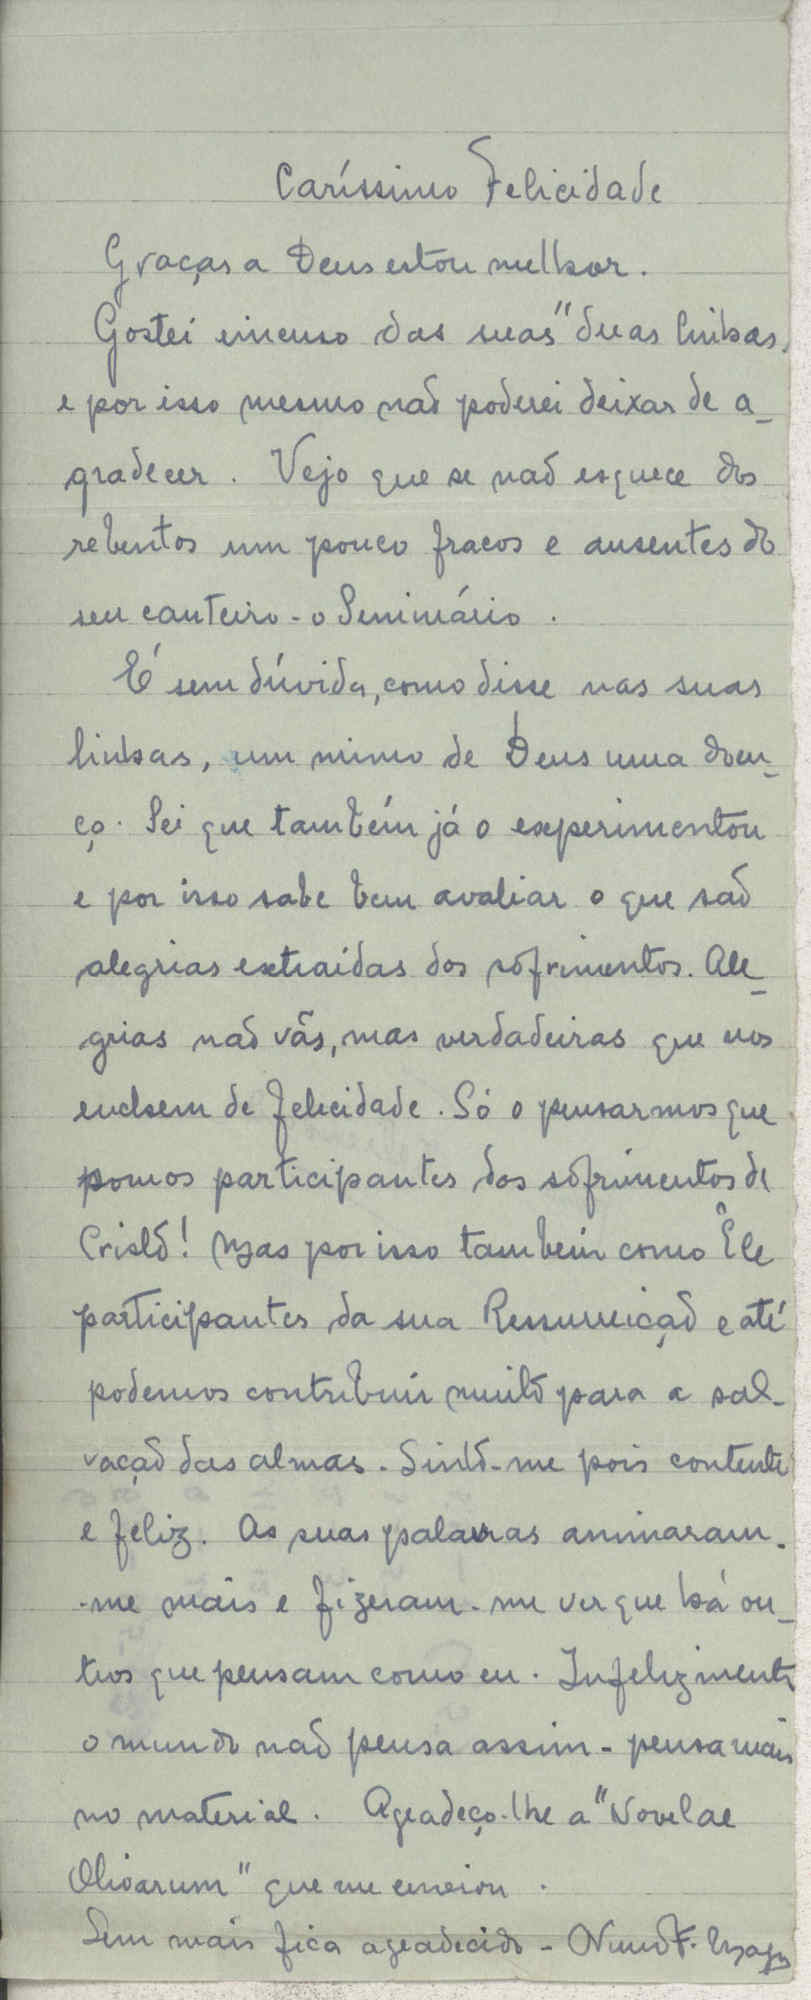 Caríssimo Felicidade
Graças a Deus estou melhor.
Gostei imenso das suas "duas linhas,
e por isso mesmo não poderei deixar de a-
gradecer. Vejo que se não esquece dos
rebentos um pouco fracos e ausentes do
seu canteiro - o Seminário.
É sem dúvida, como disse nas suas
linhas, um mimo de Deus uma doen-
ça. Sei que também já o experimentou
e por isso sabe bem avaliar o que são
alegrias extraídas dos sofrimentos. Ale-
grias não vãs, mas verdadeiras que nos
enchem de felicidade. Só o pensarmos que
somos participantes dos sofrimentos de
Cristo! Mas por isso também como Êle
participantes da sua Ressurreição e até
podemos contribuir muito para a sal-
vação das almas. Sinto-me pois contente
e feliz. As suas palavras animaram-
-me mais e fizeram-me ver que há ou-
tros que pensam como eu. Infelizmente
o mundo não pensa assim - pensa mais
no material. Agradeço-lhe a "Novelae
Olivarum" que me enviou.
Sem mais fica agradecido - Nuno F.